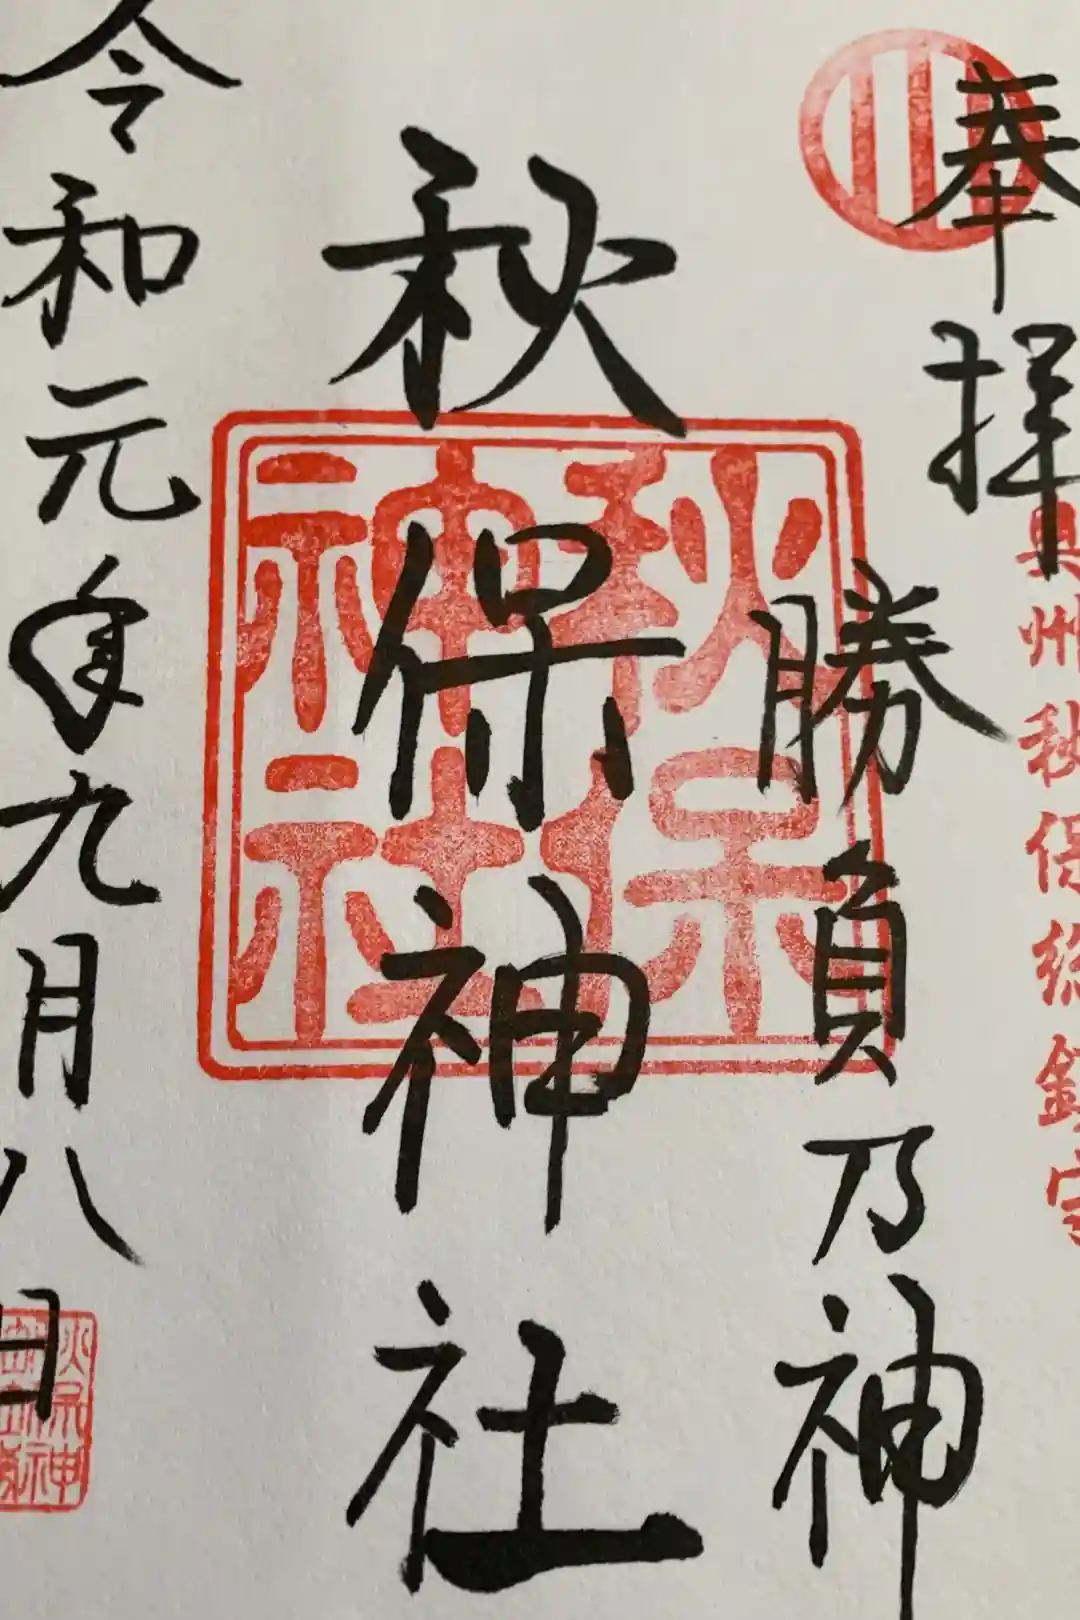 奉拝
奥州秋保総鎮守
勝負乃神
秋保神社
秋保神社
令和元年九月八日